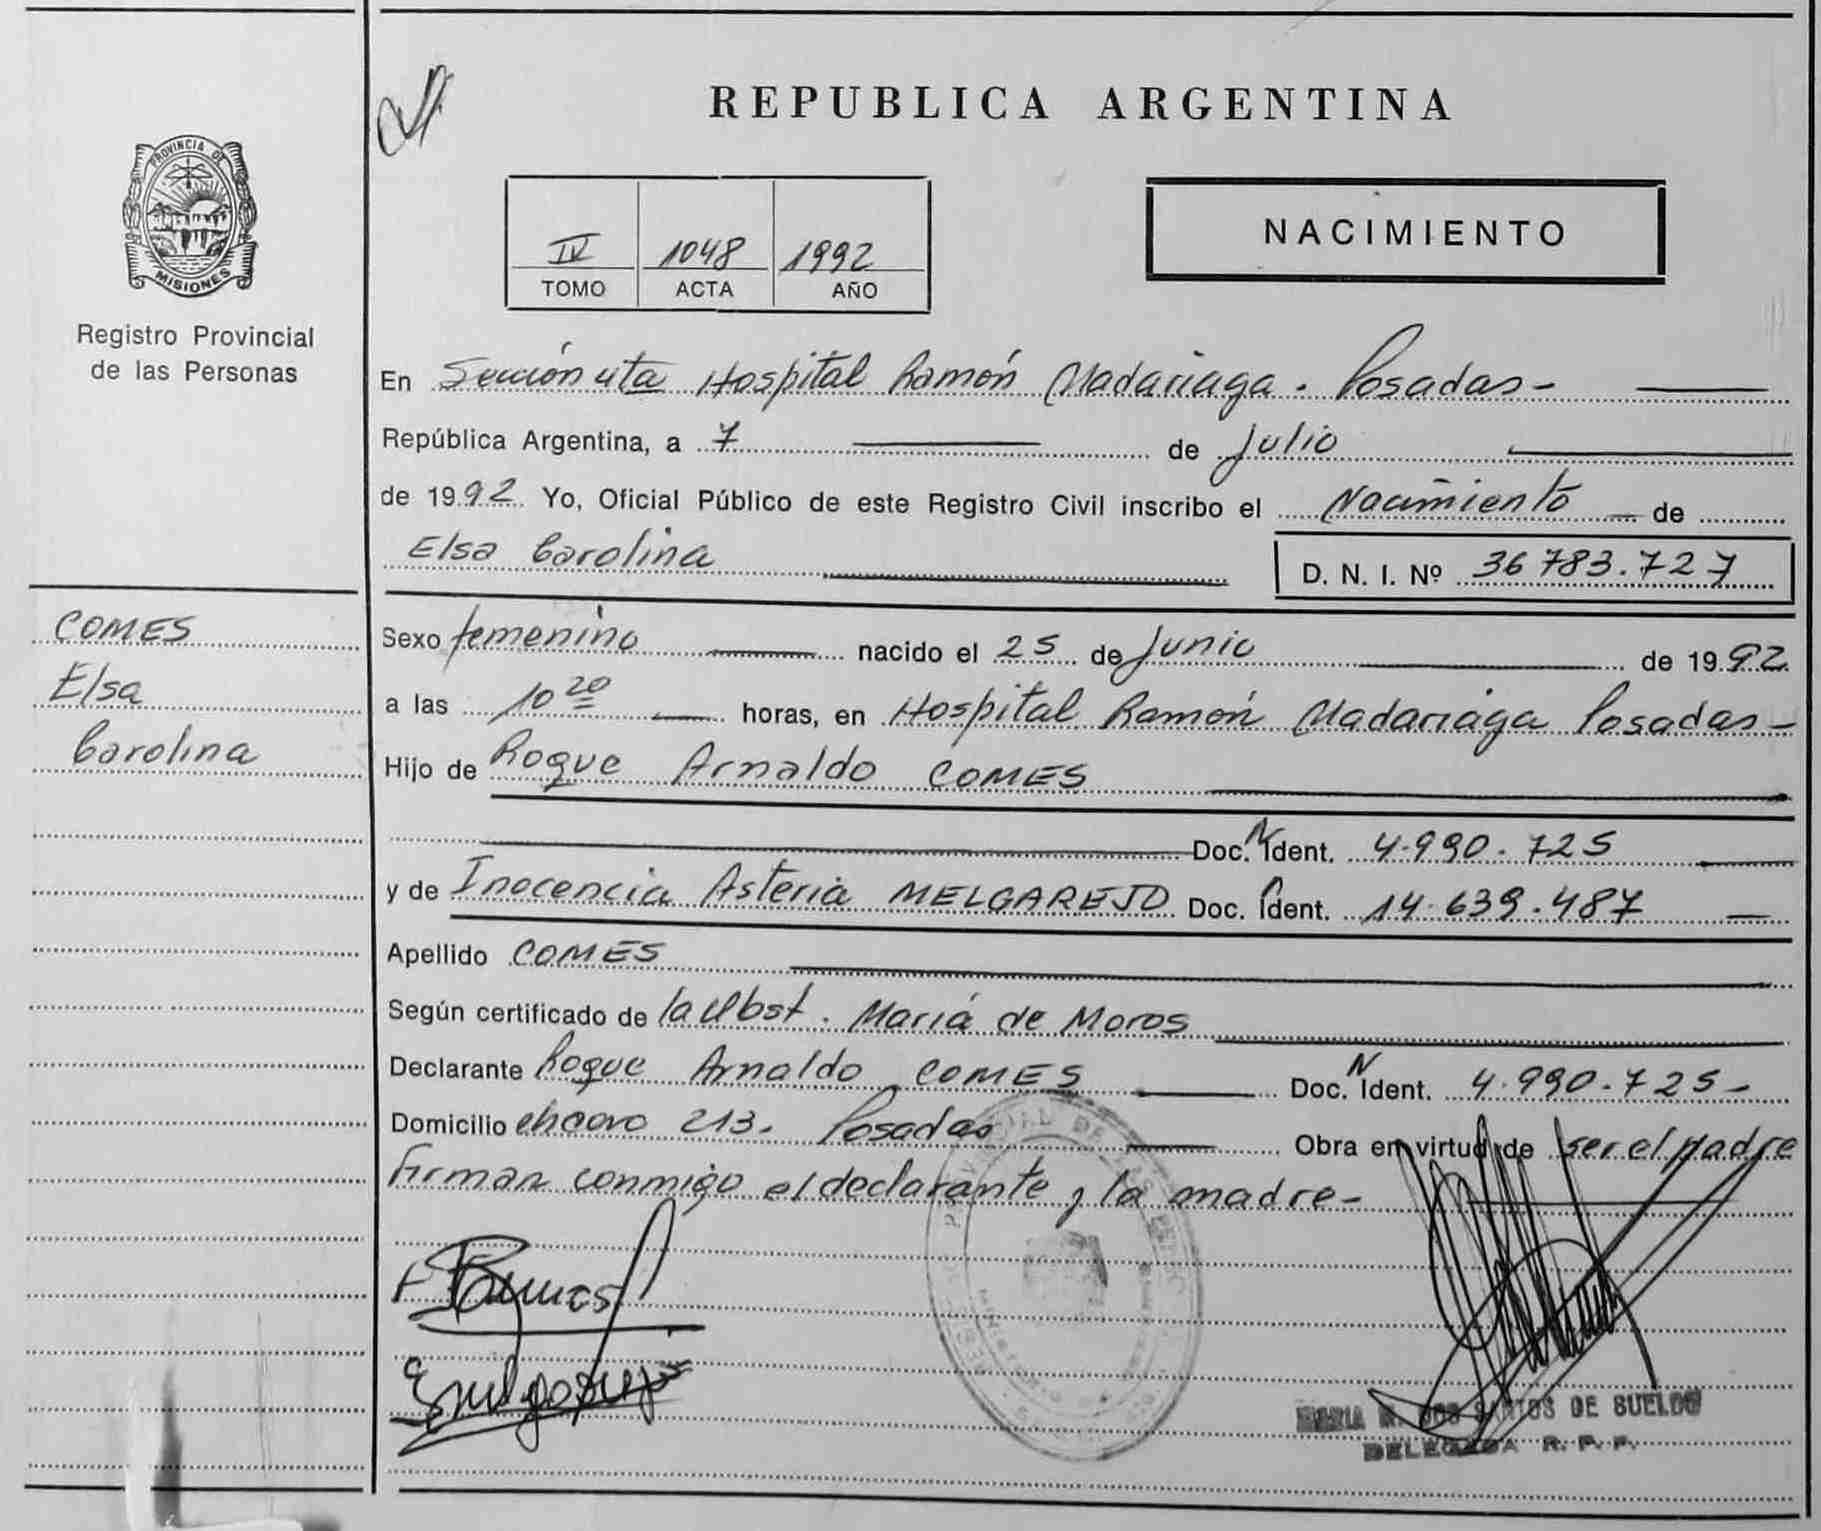 REPUBLICA ARGENTINA
PROVINCIA DE
MISIONES
Registro Provincial
de las Personas
IV 1048 1992
TOMO ACTA AÑO
NACIMIENTO
En Sección 4ta Hospital Ramón Madariaga. Posadas-
República Argentina, a 7 de Julio
de 1992 Yo, Oficial Público de este Registro Civil inscribo el Nacimiento de
Elsa Carolina
D. N. I. Nº 36783.727
COMES
Elsa
Carolina
Sexo femenino nacido el 25 de Junio de 1992
a las 10 20 horas, en Hospital Ramón Madariaga Posadas-
Hijo de Roque Arnaldo COMES
Doc. N Ident. 4.990.725
y de Inocencia Asteria MELGAREJO Doc. Ident. 14.639.487
Apellido COMES
Según certificado de la Obst. María de Moros
Declarante Roque Arnaldo COMES Doc. N Ident. 4.990.725-
Domicilio 213. Posadas Obra en virtud de ser el padre
Firman conmigo el declarante y la madre-
MARIA DOS SANTOS DE SUELDO
DELEGADA R. P. P.